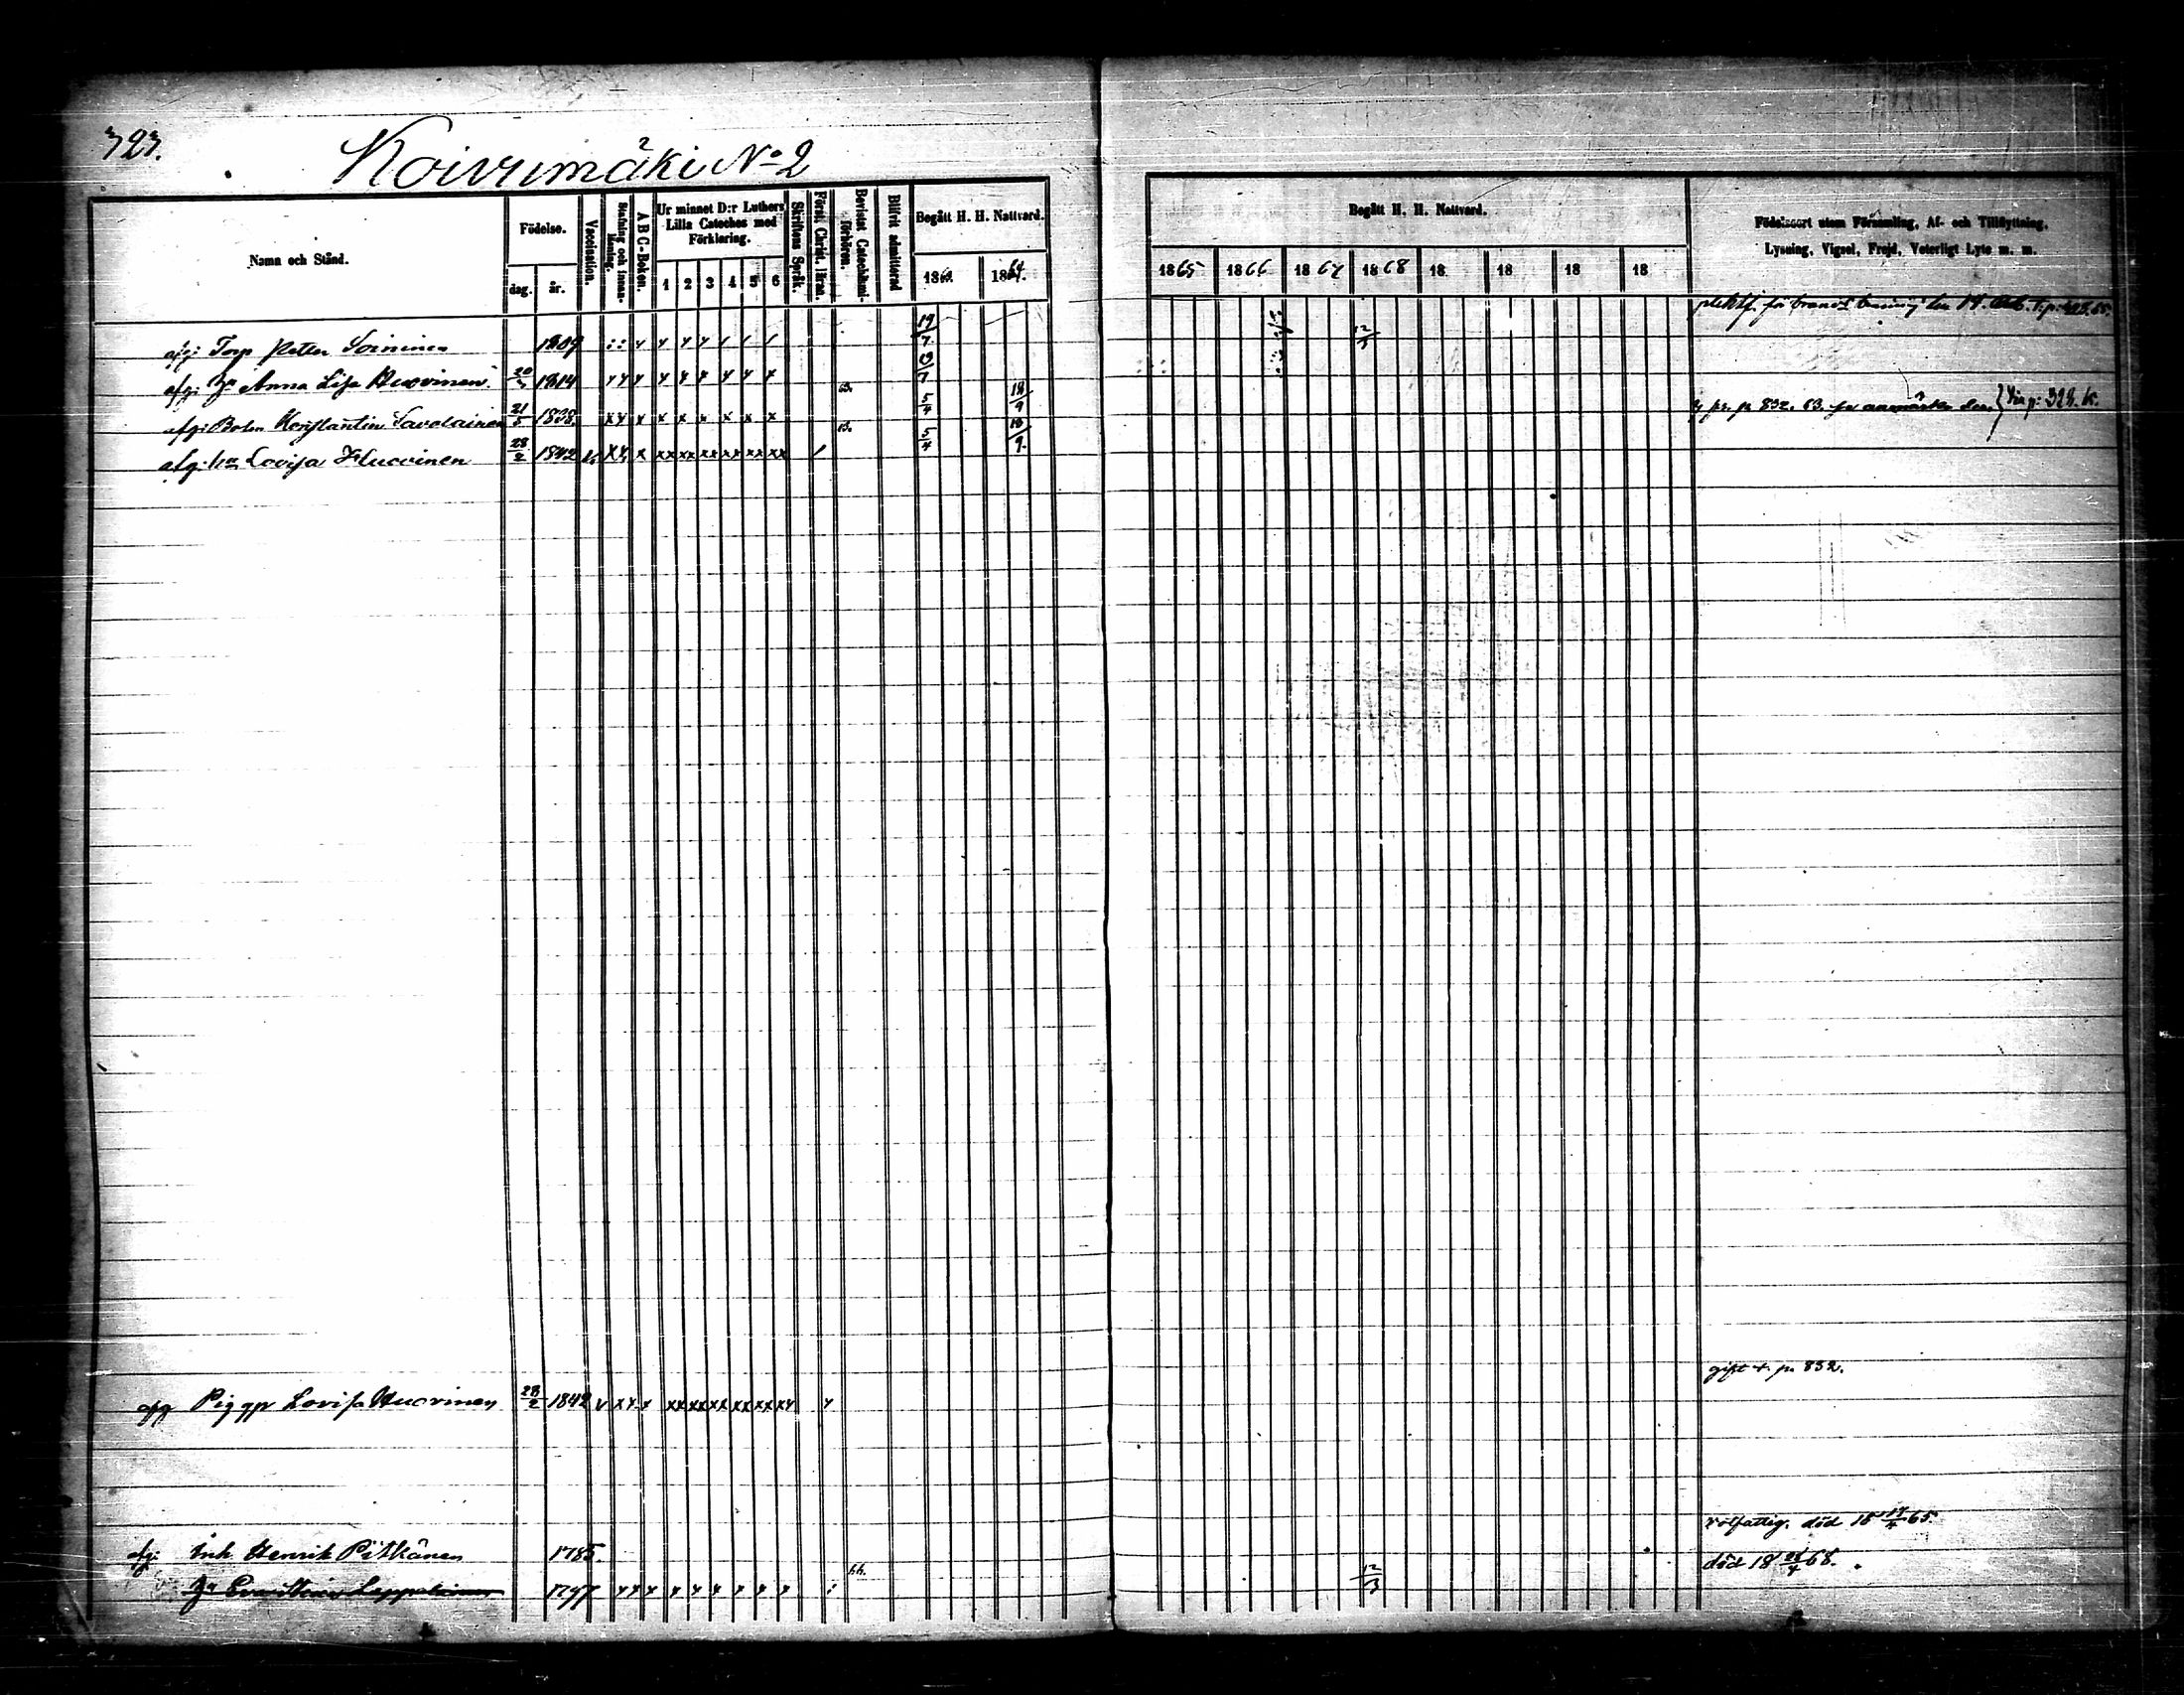 323.
Koivumäki No 2
Namn och Stånd.
Födelse.
dag. år.
Vaccination.
Stafning och innanläsning.
A B C-Boken.
Ur minnet D:r Luthers Lilla Cateches med Förklaring.
1 2 3 4 5 6
Skriftens Språk.
Först. Christ. läran.
Bevistat Catechismi-förhören.
Blifvit admitterad
Begått H. H. Nattvard.
18 1864.
Begått H. H. Nattvard.
1865 1866 1867 1868 18 18 18 18
Födelseort utom Församling, Af- och Tillflyttning,
Lysning, Vigsel, Frejd, Veterligt Lyte m. m.
afg: Torp Petter Soininen 1809 19/7 12/3
afg: Ja Anna Lisa Huovinen 20/3 1814 x x x x x x x x x
afg: Bolm Konstantin Savolainen 21/5 1838. x x x x x x x x x 63. 5/4 18/9
832. 63. Vin p: 328. k.
afg: Lovisa Huovinen 28/2 1842 v x x x xx xx xx xx xx xx / 63. 5/4 18/9.
gift t. p. 832.
afg Pig Lovisa Huovinen 28/2 1842 v x x x xx xx xx xx xx xx
rotfattig. död 18 17/4 65.
afg: Inh Henrik Pitkänen 1785.
död 18 68.
Ja Eva Stina Leppalainen 1797 x x x x x x x x x 66. 12/3